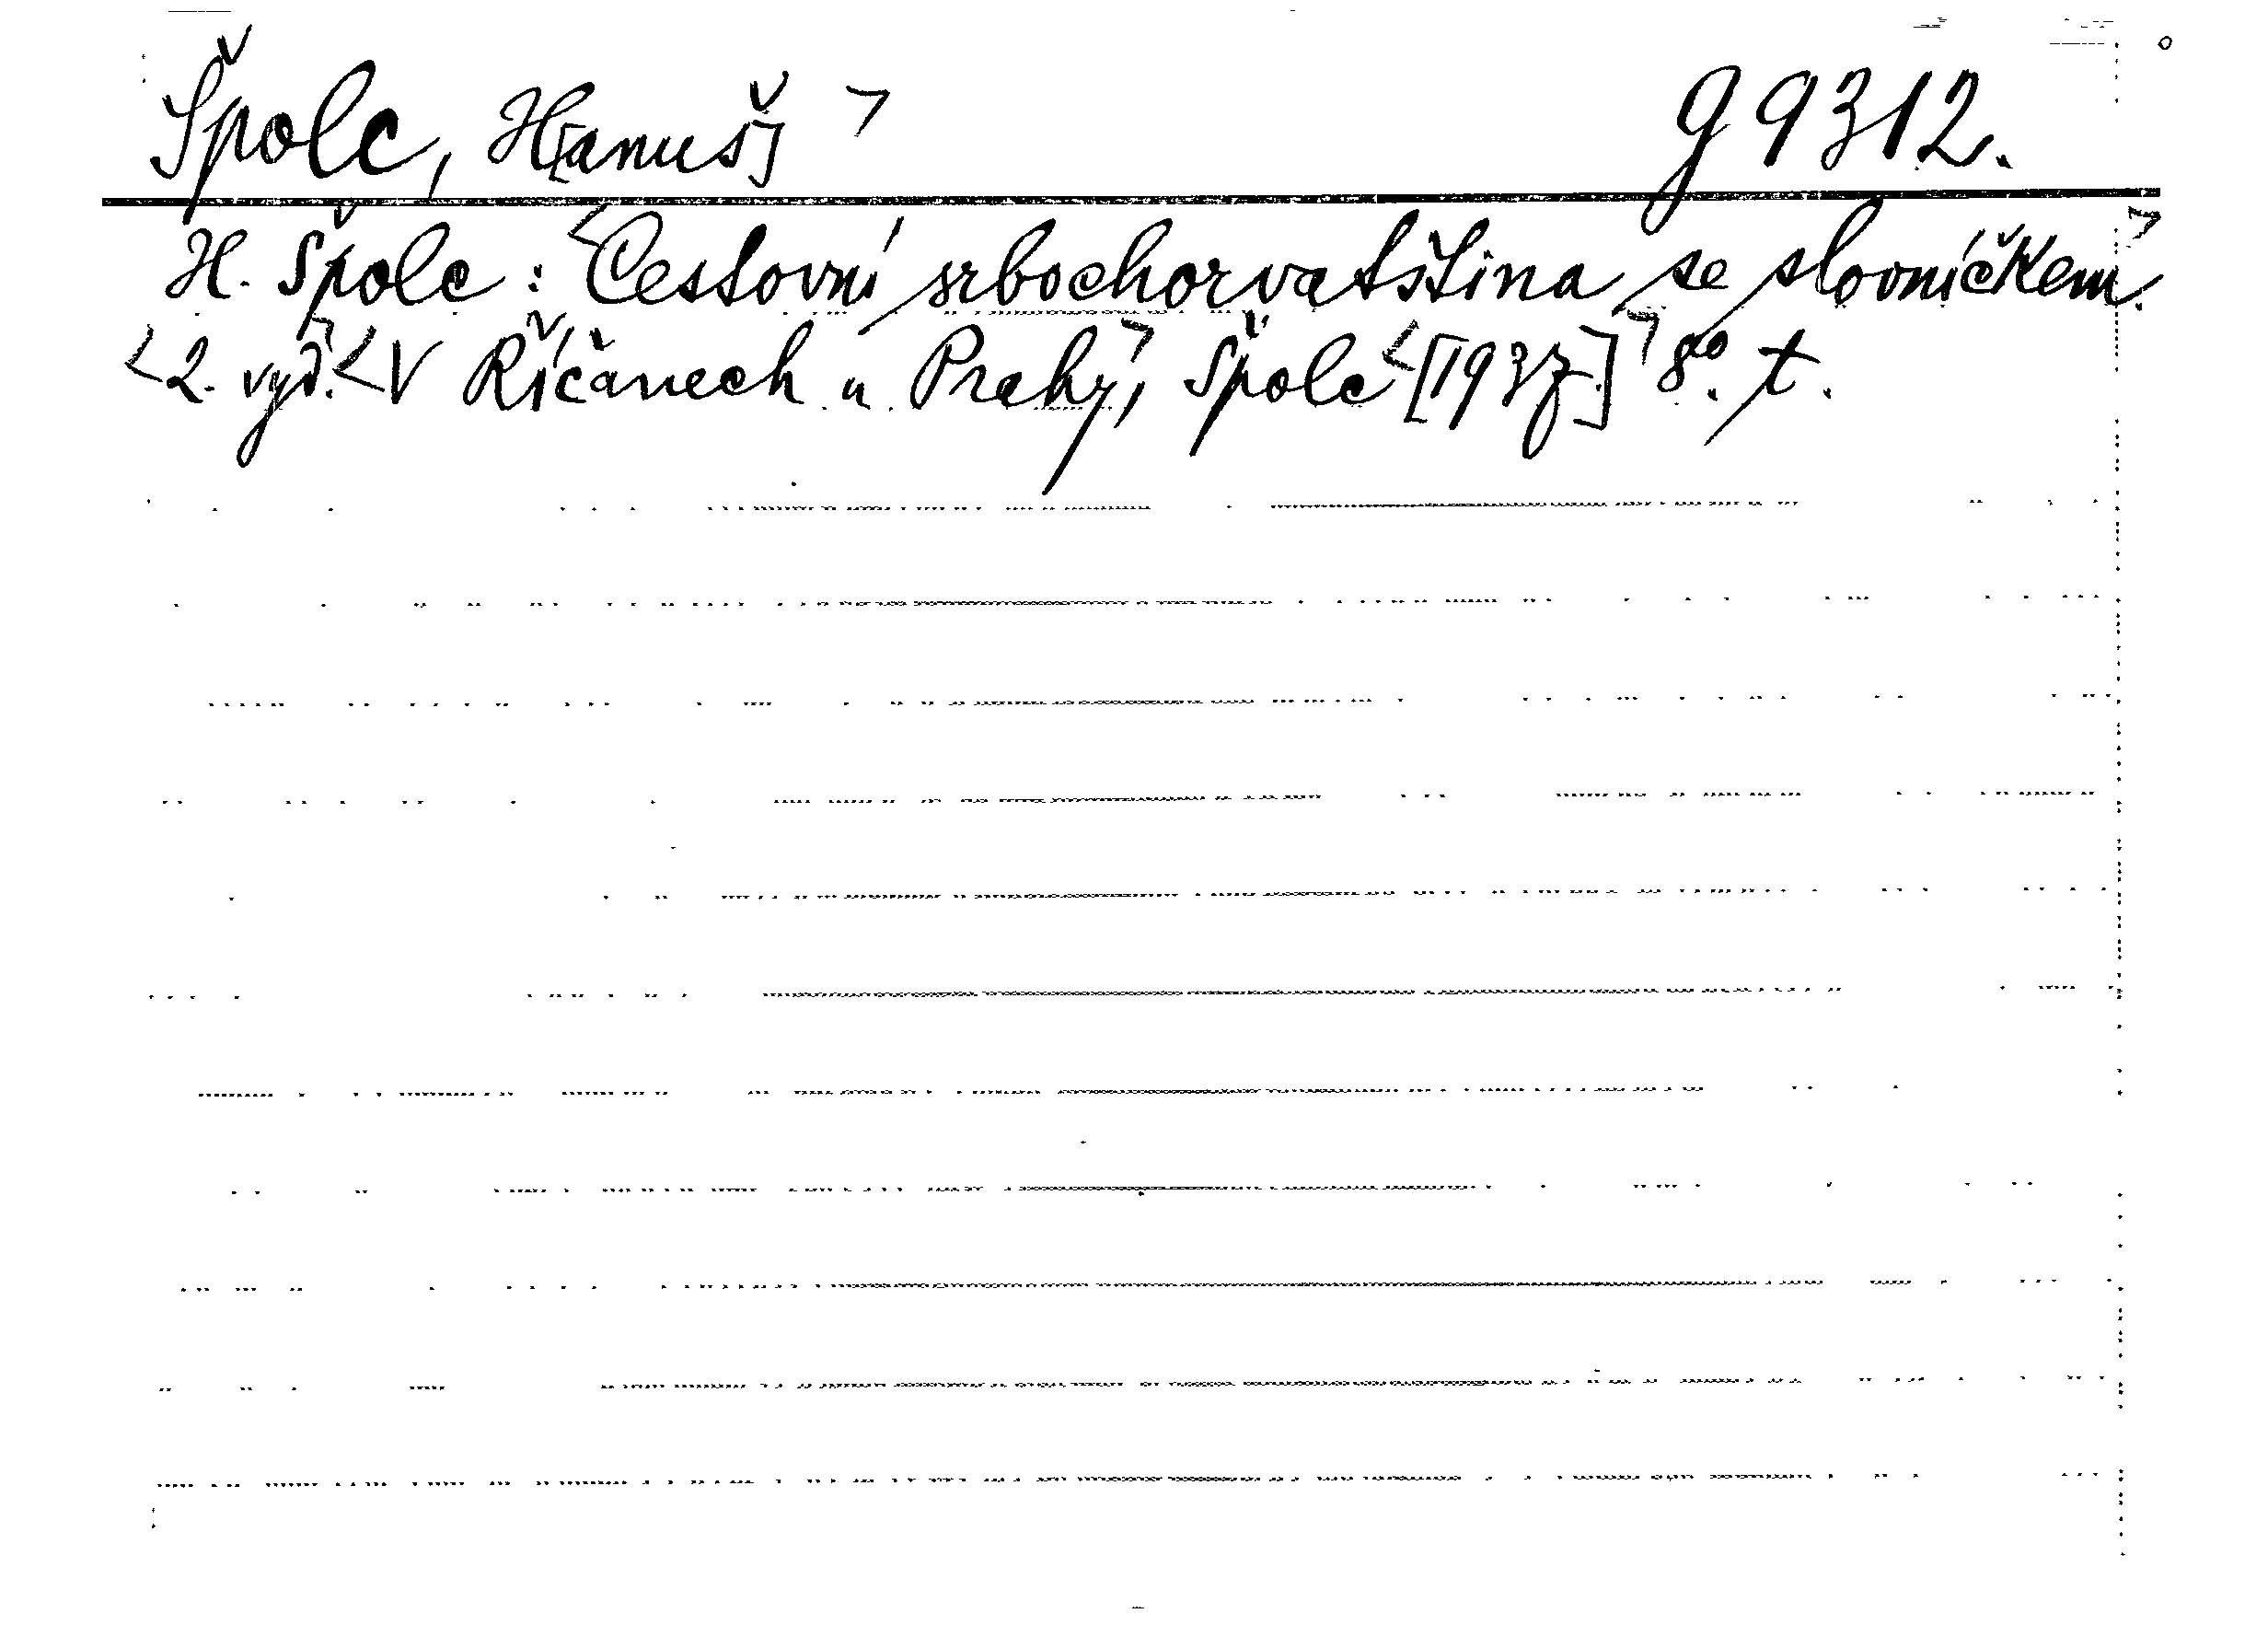 Špolc, H[anuš] g 9312.
H. Špolc: Cestovní srbochorvatština se slovníčkem.
2. vyd. V Říčanech u Prahy, Špolc [1937] 8°. t.